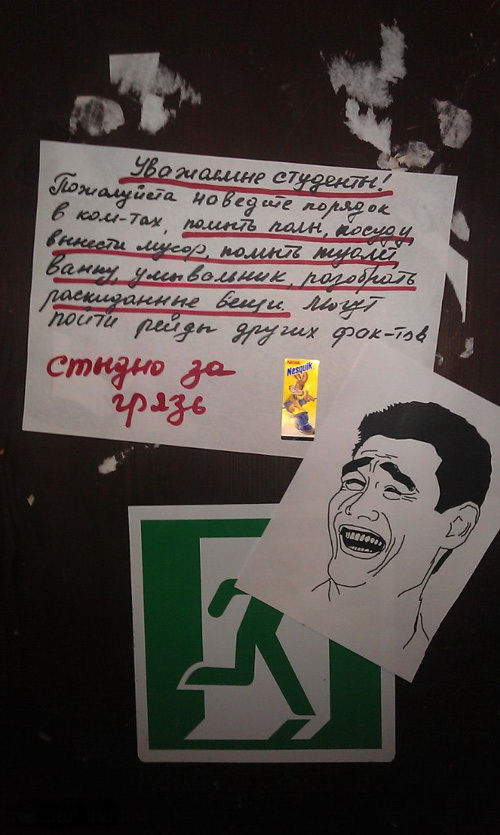 Уважаемые студенты!
Пожалуйста наведите порядок
в ком-тах, помыть полы, посуду
вынести мусор, помыть туалет,
ванну, умывальник, разобрать
раскиданные вещи. Могут
пойти рейды других фак-тов
стыдно за
грязь
Nestlé
Nesquik